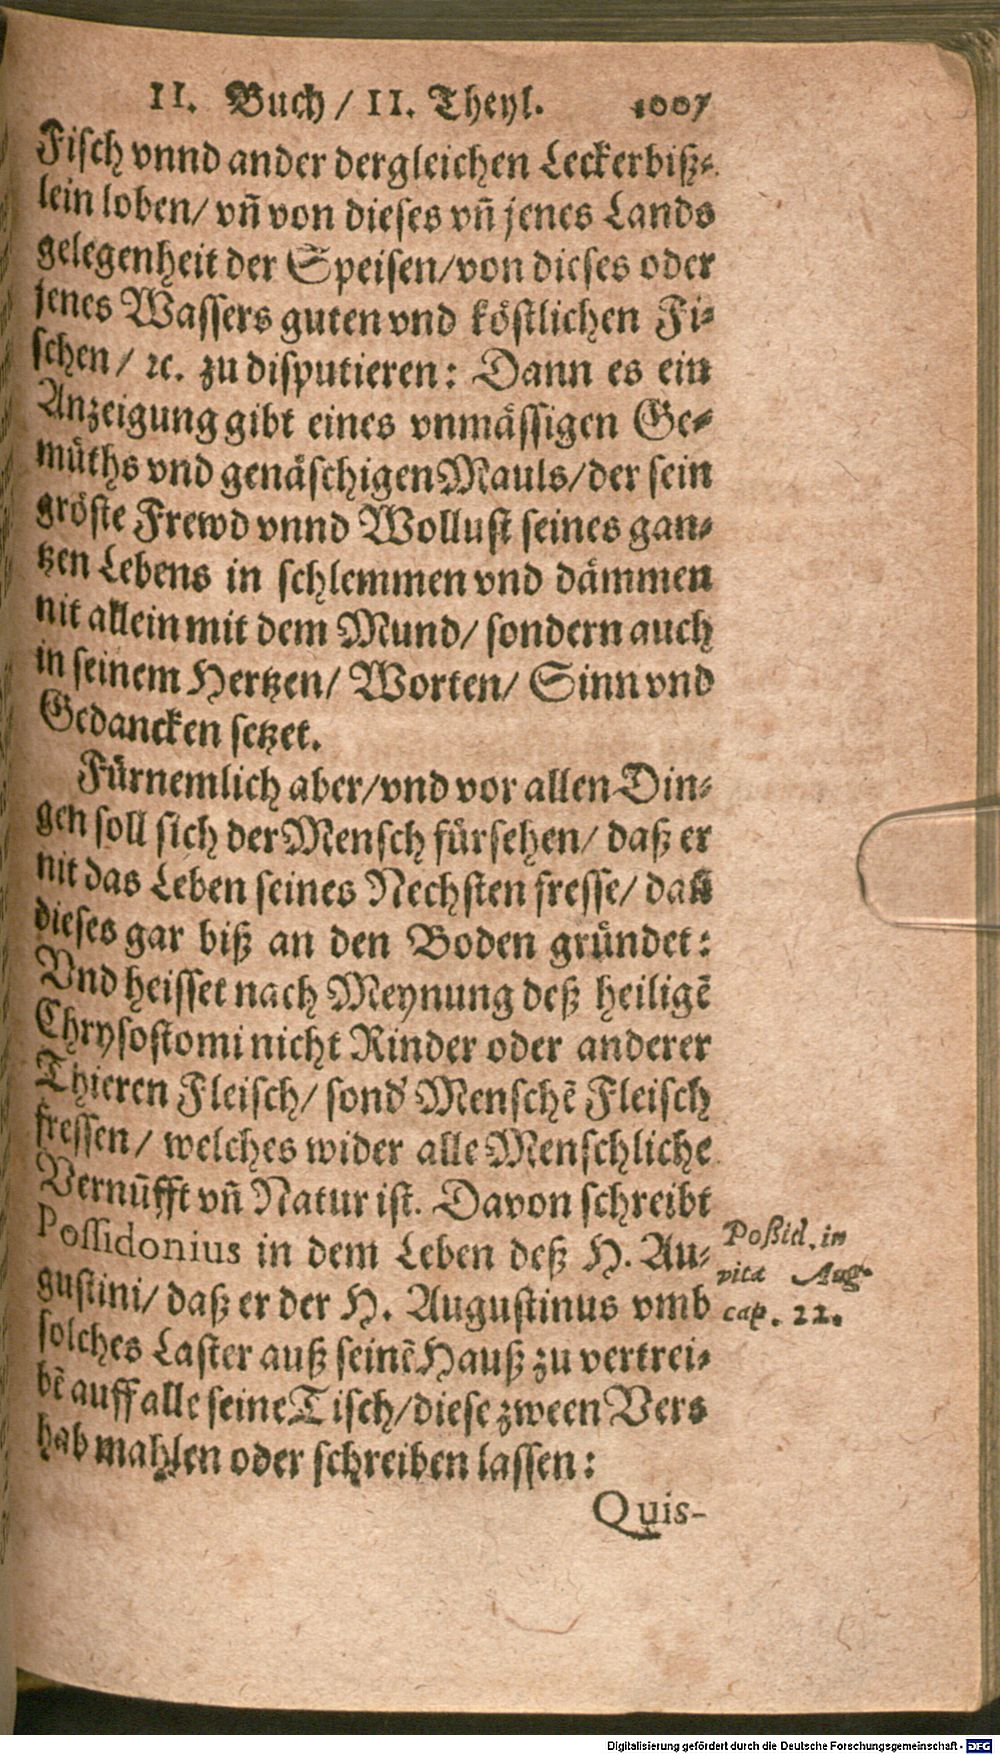 II. Buch / II. Theyl. 1007
Fisch vnnd ander dergleichen Leckerbiß-
lein loben/ vn̄ von dieses vn̄ jenes Lands
gelegenheit der Speisen/von dieses oder
jenes Wassers guten vnd köstlichen Fi-
schen / ꝛc. zu disputieren: Dann es ein
Anzeigung gibt eines vnmässigen Ge-
müths vnd genäschigen Mauls/der sein
gröste Frewd vnnd Wollust seines gan-
tzen Lebens in schlemmen vnd dämmen
nit allein mit dem Mund/ sondern auch
in seinem Hertzen/ Worten/ Sinn vnd
Gedancken setzet.
Fürnemlich aber/vnd vor allen Din-
gen soll sich der Mensch fürsehen/ daß er
nit das Leben seines Nechsten fresse/ dañ
dieses gar biß an den Boden gründet:
Vnd heisset nach Meynung deß heiligē
Chrysostomi nicht Rinder oder anderer
Thieren Fleisch/ sond' Menschē Fleisch
fressen/ welches wider alle Menschliche
Vernūfft vn̄ Natur ist. Davon schreibt
Possidonius in dem Leben deß H. Au-
gustini/ daß er der H. Augustinus vmb
solches Laster auß seinē Hauß zu vertrei-
bē auff alle seine Tisch/diese zween Vers
hab mahlen oder schreiben lassen:
Quis-
Poßid. in
vita Aug.
cap. 22.
Digitalisierung gefördert durch die Deutsche Forschungsgemeinschaft - DFG